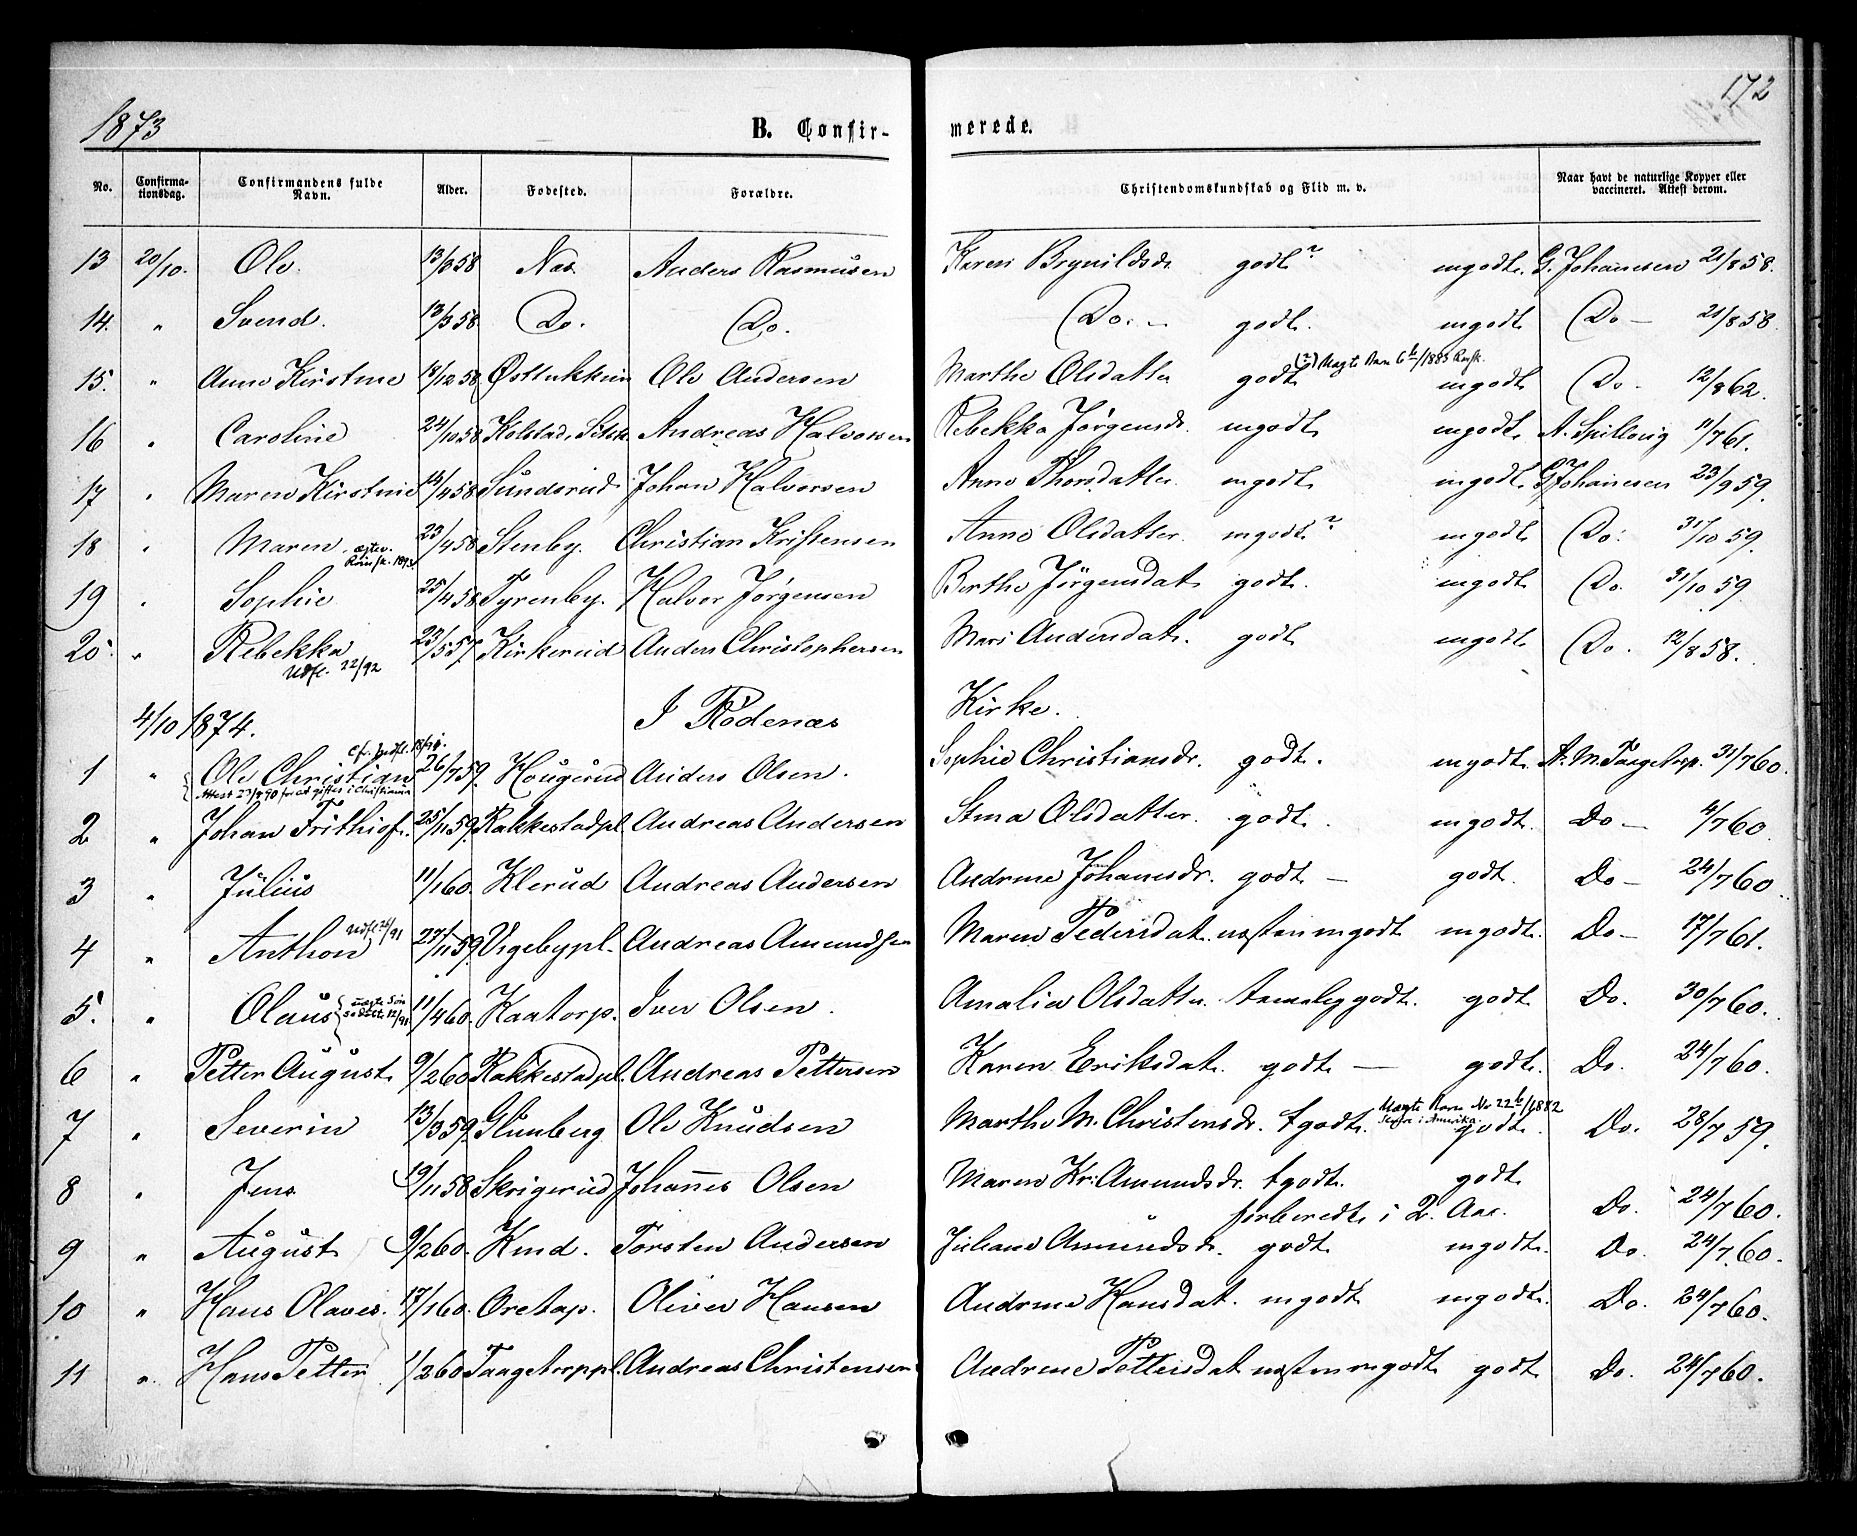 172
1873 B. Confir- merede.
No. Confirma-tionsdag. Confirmandens fulde Navn. Alder. Fødested. Forældre. Christendomskundskab og Flid m. v. Naar havt de naturlige Kopper eller vaccineret. Attest derom.
13 20/10. Ole. 13/3 58 Næs Anders Rasmusen Karen Brynildsdr godt mgodt. G. Johanesen 21/8 58.
14. " Svend. 13/3 58 Do. Do. Do. godt. mgodt Do 21/8 58.
1883
15. " Anne Kirstine 18/12 58 Ole Andersen Marthe Olsdatter godt mgodt Do. 12/8 62.
16 " Caroline 24/10 58 Kolstad, Andreas Halvorsen Rebekka Jørgensdr. mgodt mgodt. A. Spillevig 11/7 61.
17 " Maren Kirstine 14/4 58 Sundsrud Johan Halvorsen Anne Thorsdatter mgodt mgodt G Johanesen 23/9 59.
18 " Maren 23/4 58 Stenby. Christian Kristensen Anne Olsdatter. mgodt mgodt Do. 31/10 59.
19 " Sophie 25/4 58 Tyrenby. Halvor Jørgensen Berthe Jörgensdat godt. mgodt Do. 31/10 59
20 " Rebekka 23/5 57 Kirkerud Anders Christophersen Mari Andersdat. godt mgodt Do. 12/8 58.
Udfl. 22/92
4/10 1874. I Rödenæs Kirke.
1 " Ole Christian 26/7 59. Hougerud Anders Olsen. Sophie Christiansdr. godt. mgodt. A. M. Taagetorp. 31/7 60.
Attest 23/8 90 for at giftes i Christiania
2 " Johan Frithiof. 25/11 59. Rakkestadpl. Andreas Andersen Stina Olsdatter. godt. mgodt. Do 4/7 60.
3 " Julius 11/1 60. Klerud Andreas Andersen Andrine Johannesdr. godt godt. Do 24/7 60.
4 " Anthon 27/11 59. Vigebypl. Andreas Amundsen Maren Pedersdat. næsten mgodt mgodt. Do 17/7 61.
5. " Olaus 11/4 60. Kaatorp. Iver Olsen. Amalia Olsdatter. temelig godt. godt Do. 30/7 60.
6 " Petter August 9/2 60 Rakkestadpl. Andreas Pettersen Karen Eriksdat. godt godt. Do. 24/7 60.
1882
7 " Severin 13/3 59. Ole Knudsen Marthe M. Christensdr. tgodt. godt. Do. 28/7 59.
8 " Jens 19/11 58 Skrigerud Johannes Olsen Maren Kr. Amundsdr. tgodt. godt Do. 24/7 60.
forberedt i 2 Aar.
9 " August 9/2 60. Kind. Torsten Andersen Juliane Amundsdr. godt mgodt. Do. 24/7 60.
10 " Hans Olaves. 17/1 60. Oretop. Oliver Hansen Andrine Hansdat. mgodt mgodt. Do. 24/7 60.
11 " Hans Petter 1/2 60 Taagetorppl. Andreas Christensen Andrine Pettersdat næsten mgodt godt Do. 24/7 60.